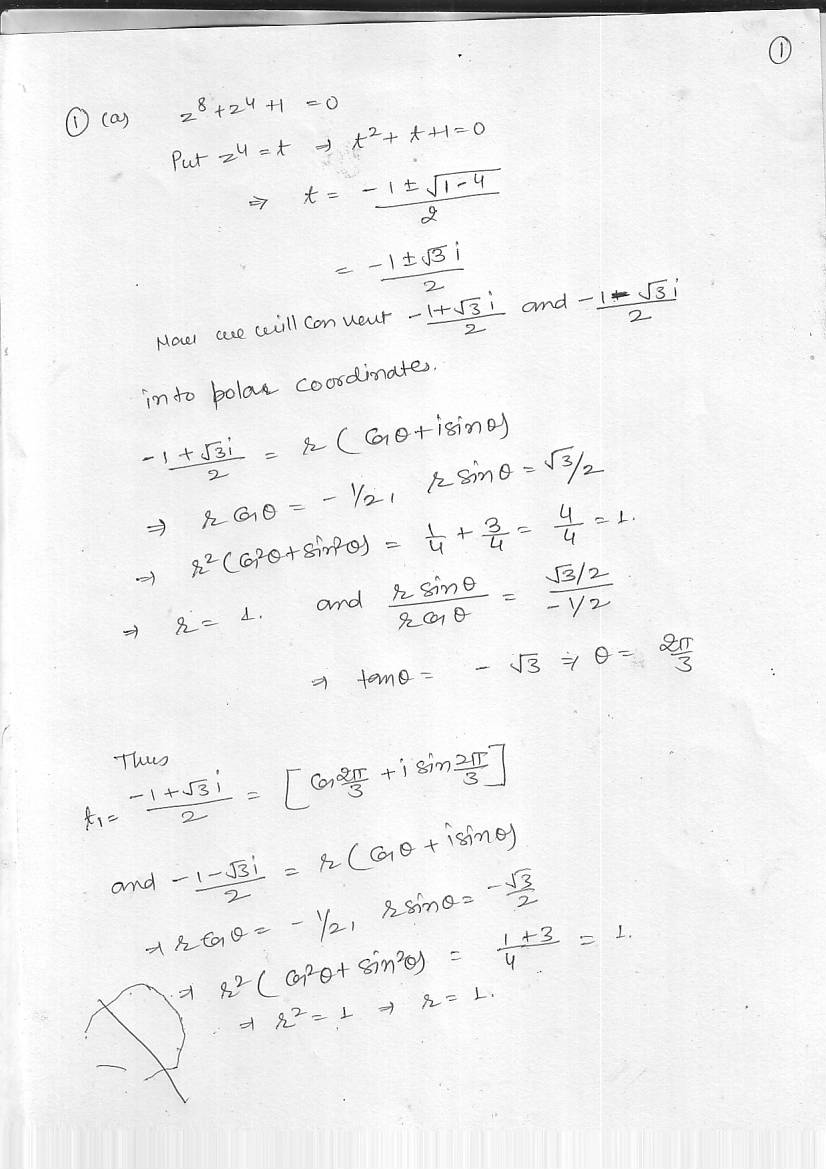 ①
① (a) z⁸ + z⁴ + 1 = 0
Put z⁴ = t ⇒ t² + t + 1 = 0
⇒ t = (-1 ± √(1-4))/2
= (-1 ± √3 i)/2
Now we will convert (-1+√3 i)/2 and (-1-√3 i)/2
into polar coordinates.
(-1+√3i)/2 = r (cosθ + i sinθ)
⇒ r cosθ = -1/2, r sinθ = √3/2
⇒ r² (cos²θ + sin²θ) = 1/4 + 3/4 = 4/4 = 1.
⇒ r = 1. and (r sinθ)/(r cosθ) = (√3/2)/(-1/2)
⇒ tanθ = -√3 ⇒ θ = 2π/3
Thus
t₁ = (-1+√3 i)/2 = [cos 2π/3 + i sin 2π/3]
and (-1-√3i)/2 = r (cosθ + i sinθ)
⇒ r cosθ = -1/2, r sinθ = -√3/2
⇒ r² (cos²θ + sin²θ) = (1+3)/4 = 1.
⇒ r² = 1 ⇒ r = 1.